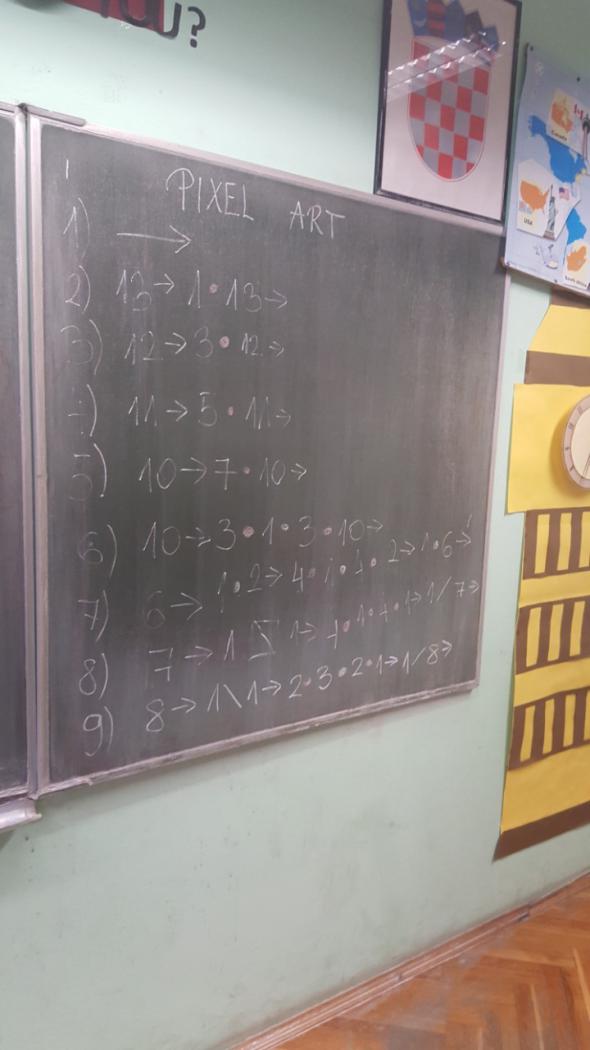 YOU?
PIXEL ART
1) →
2) 13→ 1 • 13→
3) 12→ 3 • 12→
4) 11→ 5 • 11→
5) 10→ 7 • 10→
6) 10→ 3 • 1 • 3 • 10→
7) 6→ 1 • 2→ 4 • 1 • 4 • 2→ 1 • 6→
8) 7→ 1 1→ 1 • 1 • 1→ 1 / 7→
9) 8→ 1 \ 1→ 2 • 3 • 2 • 1→ 1 / 8→
Canada
USA